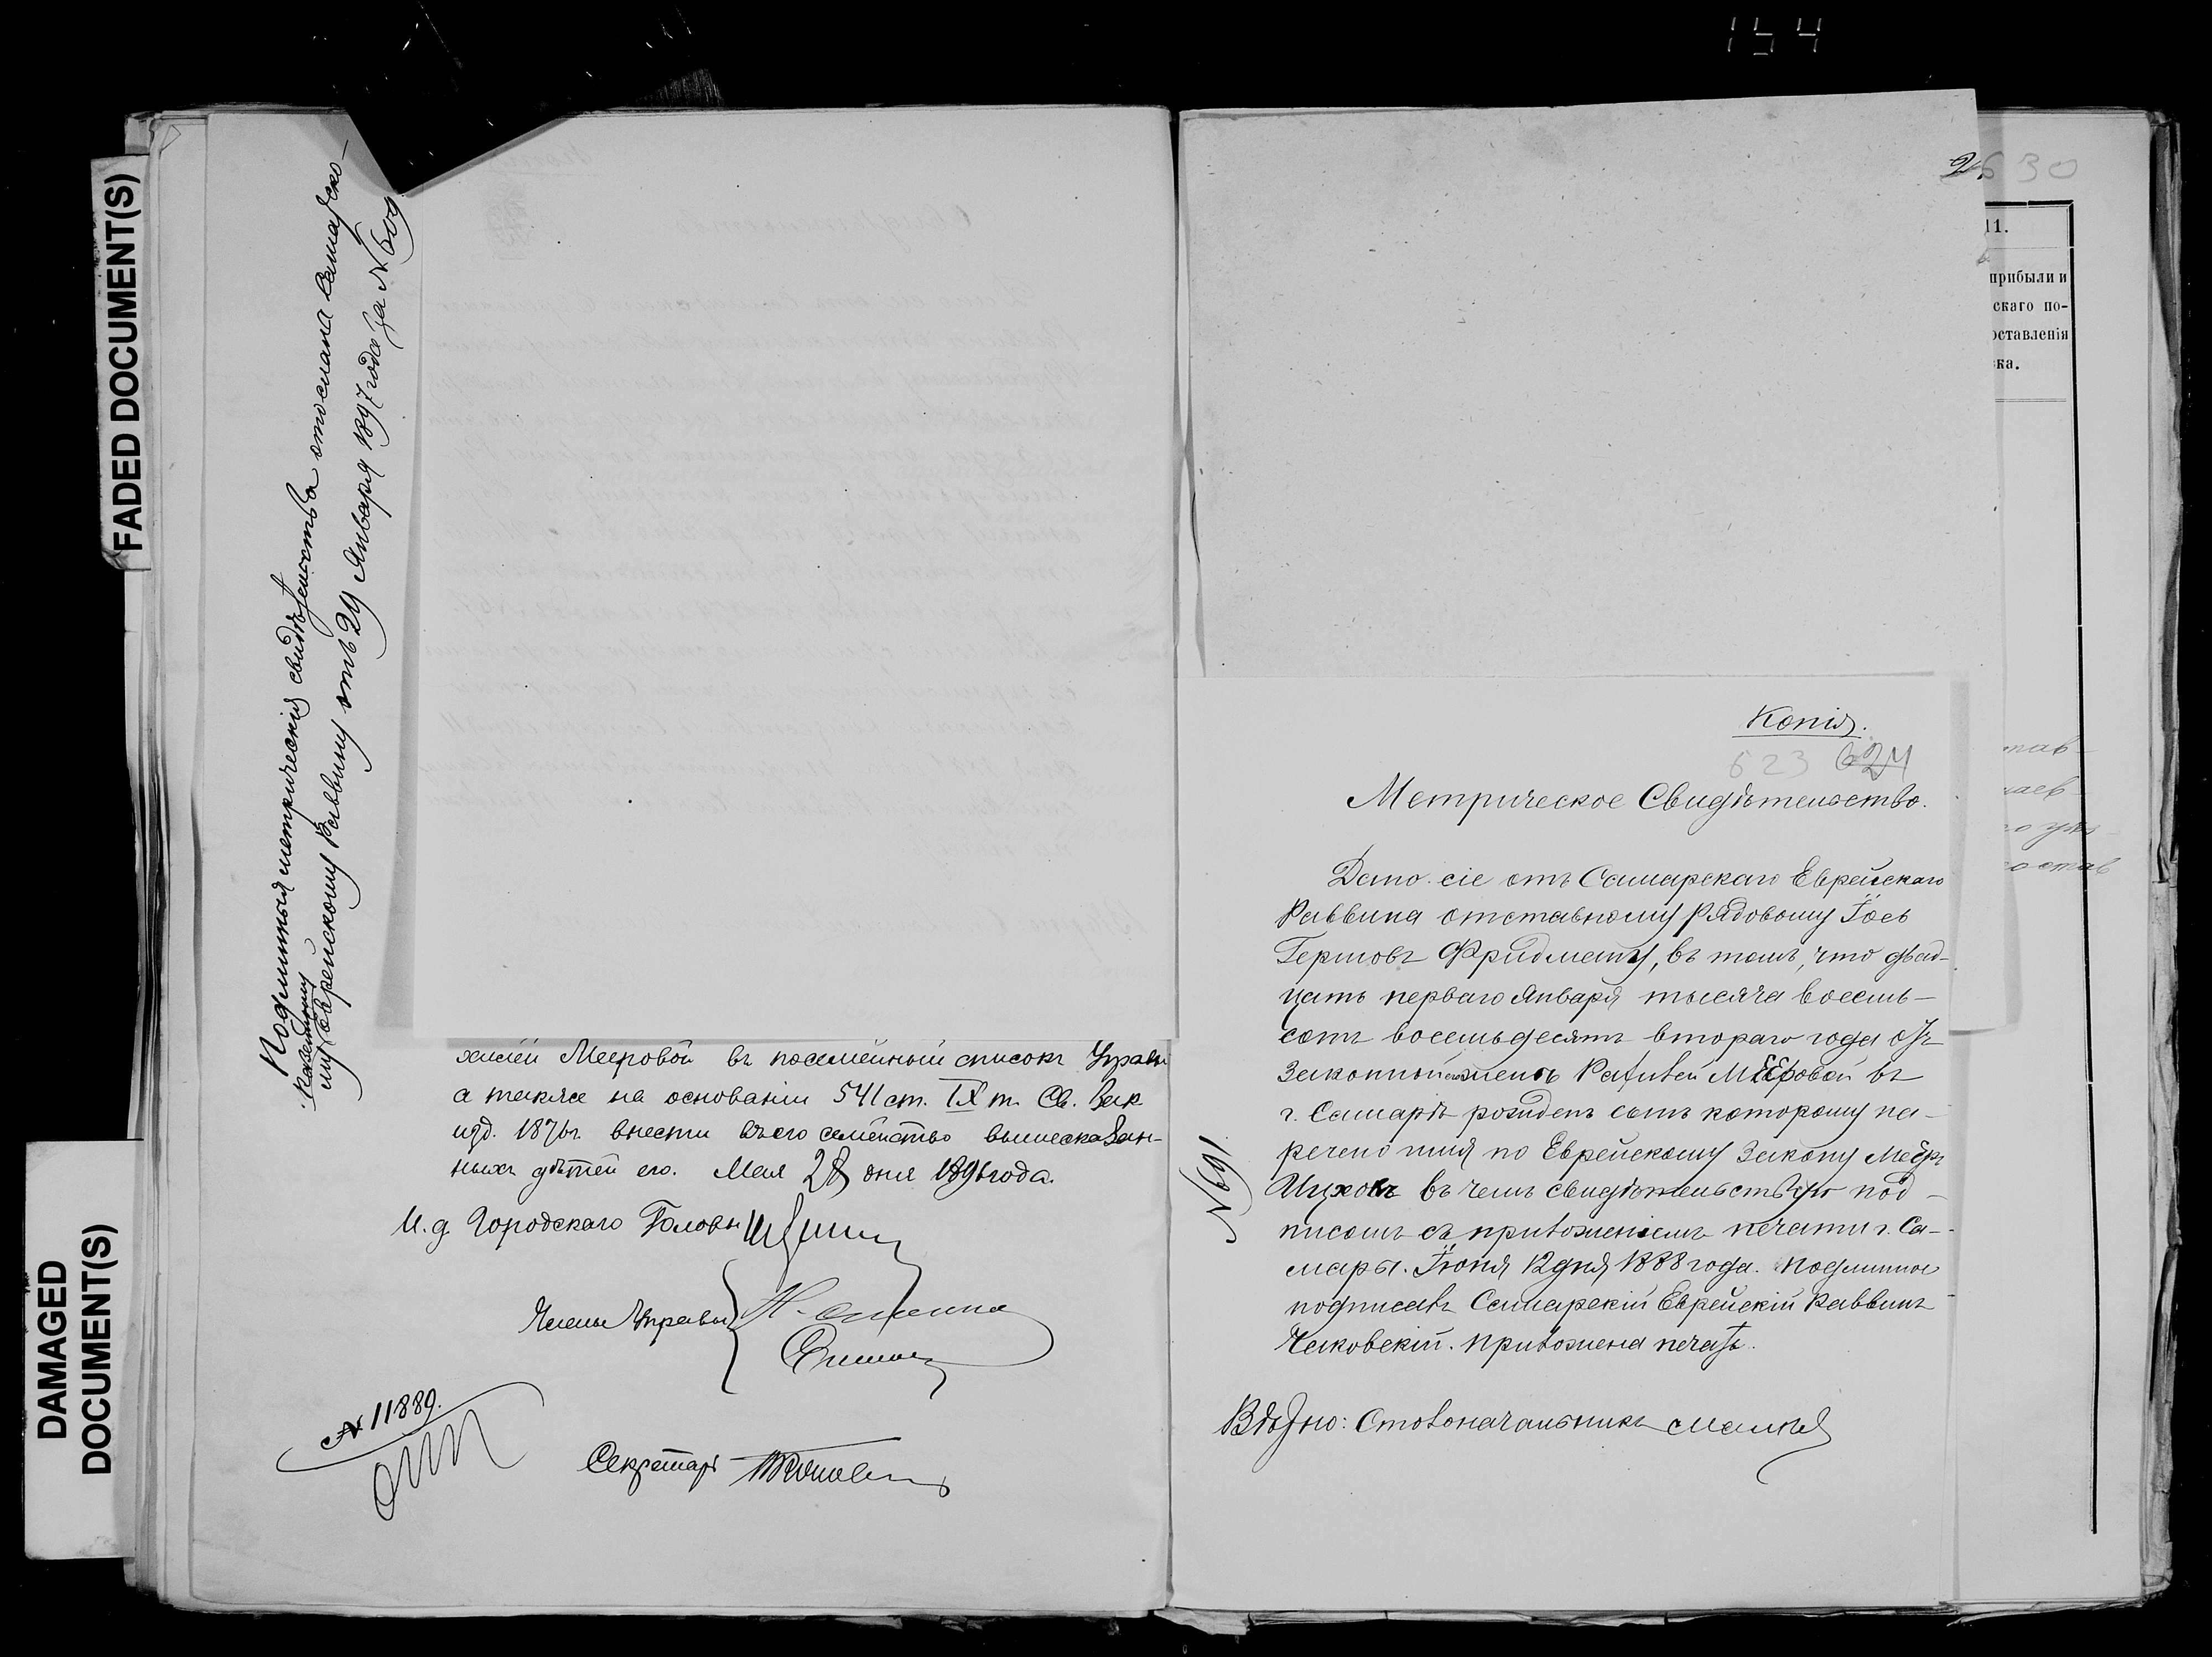 154
FADED DOCUMENT(S)
DAMAGED
DOCUMENT(S)
Подлинныя метрическія свидѣтельства отосланы Самарско-
му Казенному Еврейскому Раввину отъ 29 Января 1897 года за № 609
хилей Мееровой въ посемейный списокъ Управы
а также на основаніи 541 ст. IX т. Св. Зак.
изд. 1876 г. внести въ его семейство вышесказан-
ныхъ дѣтей его. Мая 28 дня 1896 года.
И. д. Городскаго Головы
Члены Управы
№ 11889.
Секретарь
2 6 30
11.
прибыли и
скаго по-
оставленія
ка.
Копія.
623 624
Метрическое Свидѣтельство.
Дано сіе отъ Самарскаго Еврейскаго
Раввина отставному рядовому Іось
Гершовъ Фридману, въ томъ, что двад-
цать перваго Января тысяча восемь-
сотъ восемьдесятъ втораго года отъ
законной жены Рахилей Мееровой въ
г. Самарѣ рожденъ сынъ которому на-
речено имя по Еврейскому Закону Меєръ
Ицхокъ въ чемъ свидѣтельствую под-
писомъ съ приложеніемъ печати г. Са-
мары. Іюня 12 дня 1888 года. Подлинное
подписалъ Самарскій Еврейскій Раввинъ
Чаковскій. Приложена печать.
№ 691
Вѣрно: Столоначальникъ